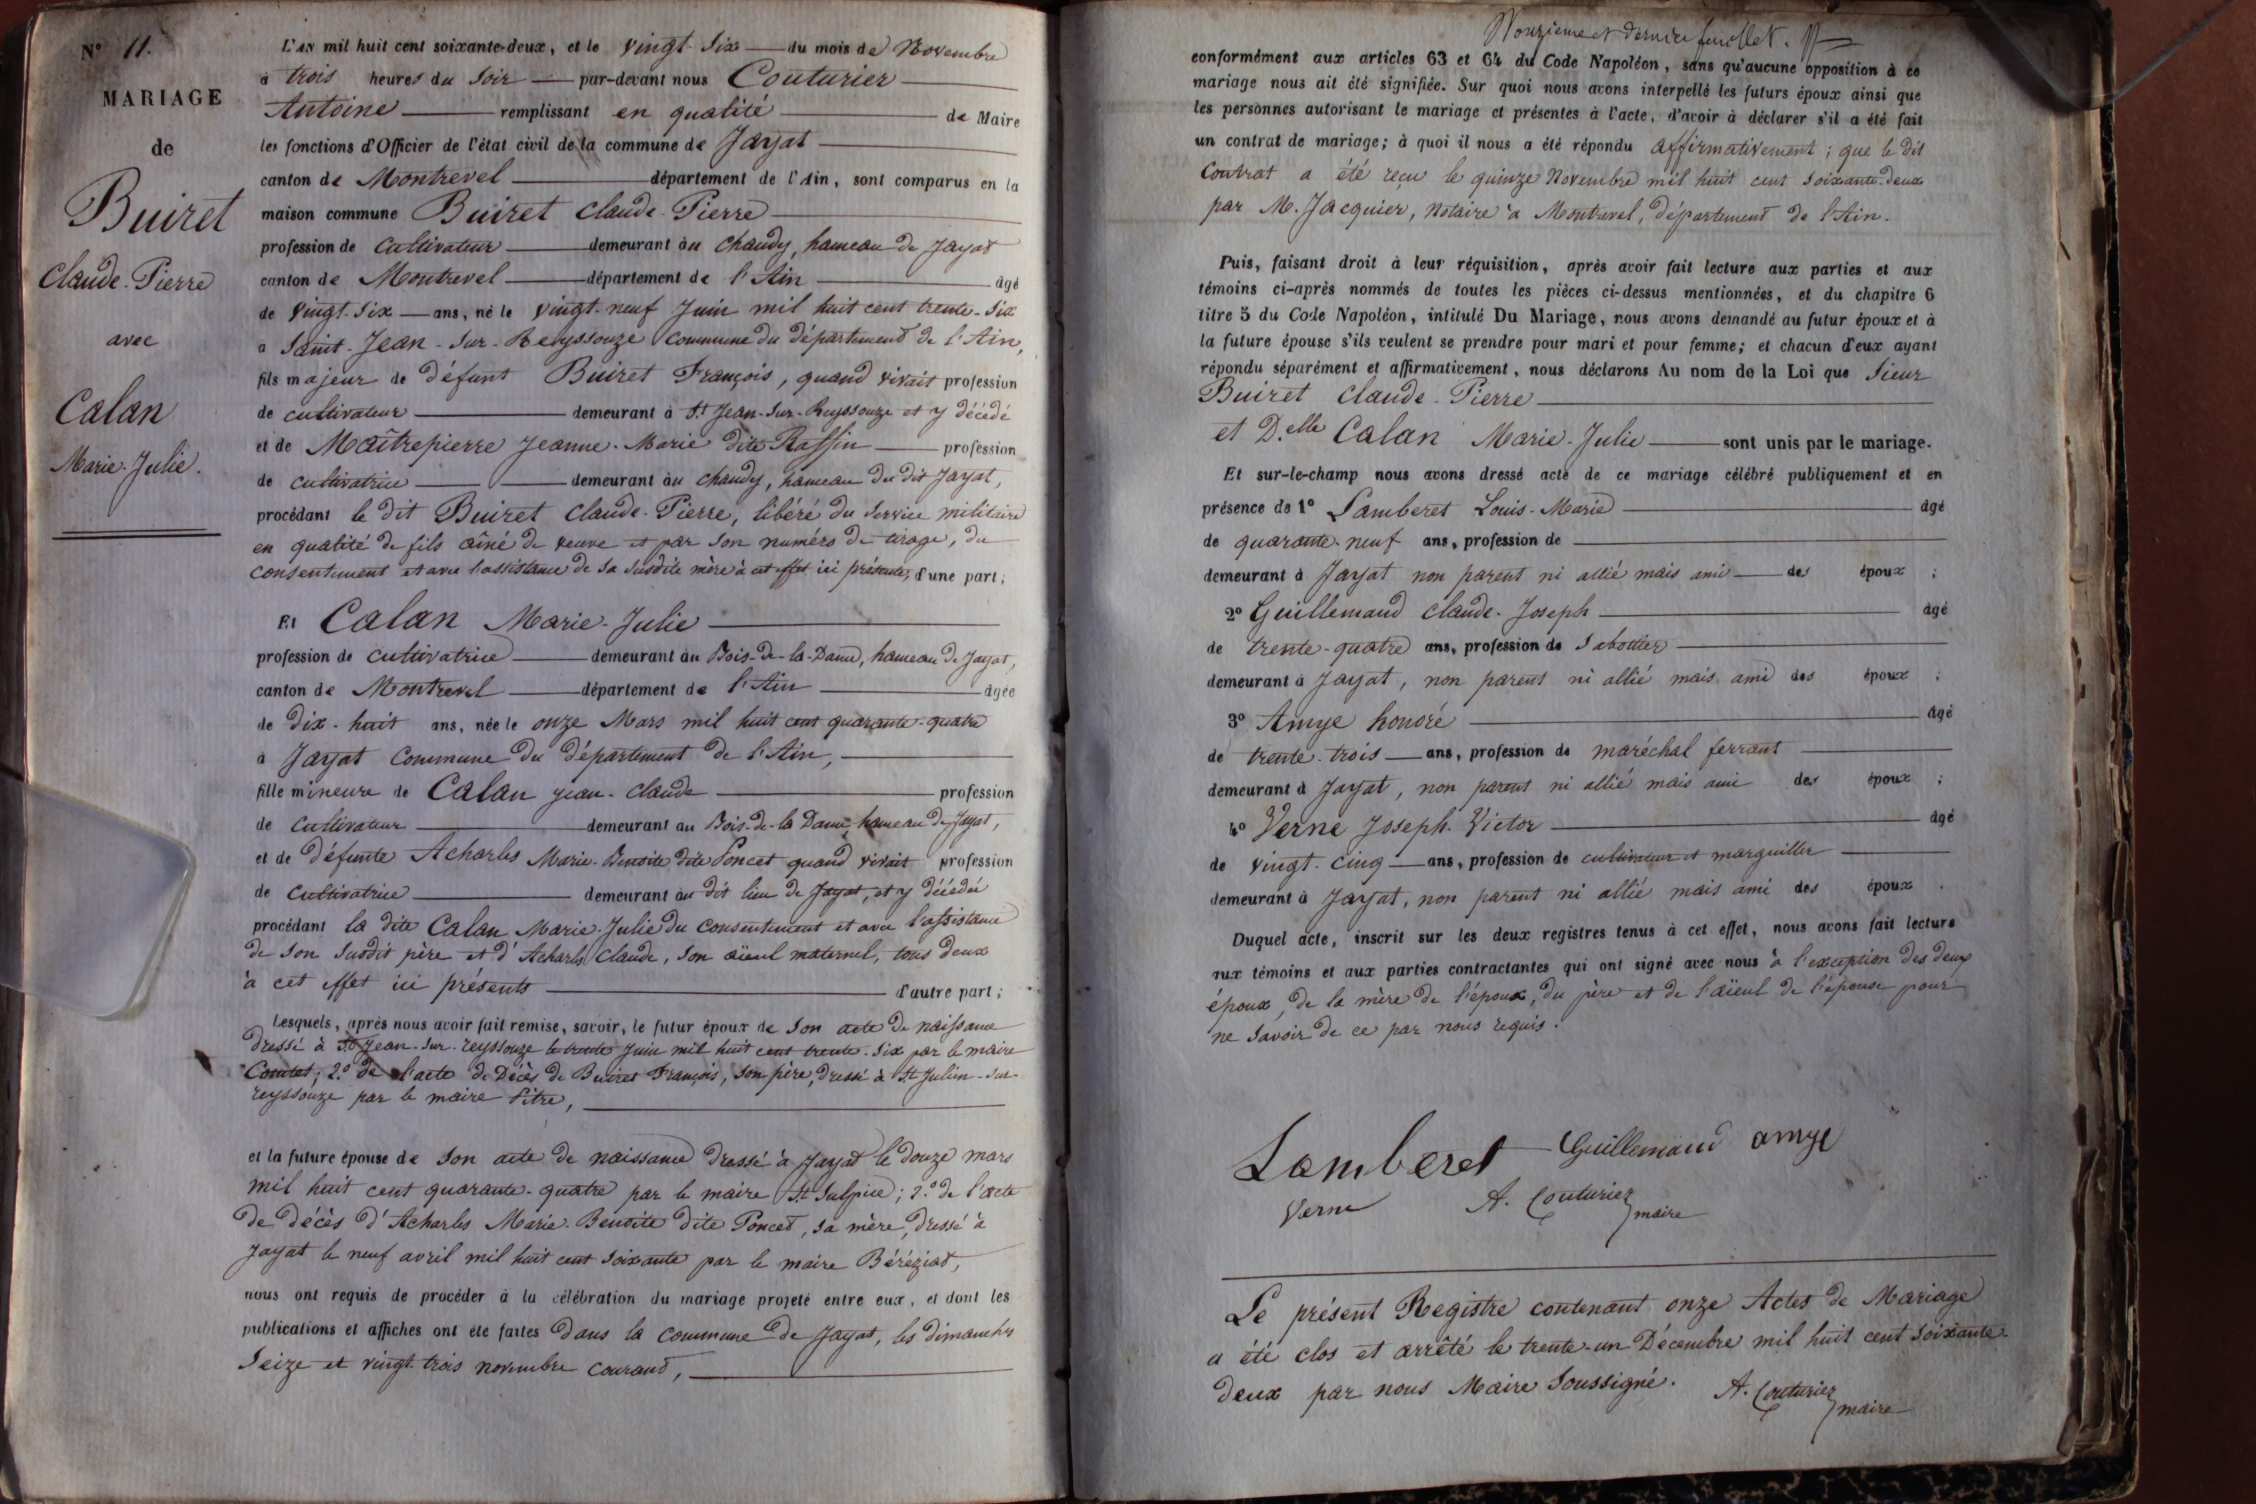 N° 11.
MARIAGE
de
Buiret
Claude-Pierre
avec
Calan
Marie-Julie.
L'AN mil huit cent soixante-deux, et le vingt-six du mois de Novembre
à trois heures du soir par-devant nous Couturier
Antoine remplissant en qualité de Maire
les fonctions d'Officier de l'état civil de la commune de Jayat
canton de Montrevel département de l'Ain, sont comparus en la
maison commune Buiret Claude-Pierre
profession de cultivateur demeurant au Chaudy, hameau de Jayat
canton de Montrevel département de l'Ain âgé
de vingt-six ans, né le vingt-neuf Juin mil huit cent trente-six
à Saint-Jean-sur-Reyssouze commune du département de l'Ain,
fils majeur de défunt Buiret François, quand vivait profession
de cultivateur demeurant à St Jean-sur-Reyssouze et y décédé
et de Maîtrepierre Jeanne-Marie dite Raffin profession
de cultivatrice demeurant au Chaudy, hameau du dit Jayat,
procédant le dit Buiret Claude-Pierre, libéré du service militaire
en qualité de fils aîné de veuve et par son numéro de tirage, du
consentement et avec l'assistance de sa susdite mère à cet effet ici présente, d'une part;
Et Calan Marie-Julie
profession de cultivatrice demeurant au Bois-de-la-Dame, hameau de Jayat,
canton de Montrevel département de l'Ain âgée
de dix-huit ans, née le onze Mars mil huit cent quarante-quatre
à Jayat commune du département de l'Ain,
fille mineure de Calan Jean-Claude profession
de cultivateur demeurant au Bois-de-la Dame, hameau de Jayat,
et de défunte Acharles Marie-Benoite dite Poncet quand vivait profession
de cultivatrice demeurant au dit lieu de Jayat, et y décédée
procédant la dite Calan Marie-Julie du consentement et avec l'assistance
de son susdit père et d'Acharles Claude, son aïeul maternel, tous deux
à cet effet ici présents d'autre part;
Lesquels, après nous avoir fait remise, savoir, le futur époux de son acte de naissance
dressé à St Jean-sur-reyssouze le trente Juin mil huit cent trente-six par le maire
Comtet; 2.° de l'acte de Décès de Buiret François, son père, dressé à St Julien-sur-
reyssouze par le maire Pitre,
et la future épouse de son acte de naissance dressé à Jayat le douze mars
mil huit cent quarante-quatre par le maire St Sulpice; 2.° de l'acte
de décès d'Acharles Marie-Benoite dite Poncet, sa mère, dressé à
Jayat le neuf avril mil huit cent soixante par le maire Béréziat,
nous ont requis de procéder à la célébration du mariage projeté entre eux, et dont les
publications et affiches ont été faites dans la commune de Jayat, les dimanches
seize et vingt-trois novembre courant,
et dernier feuillet.
conformément aux articles 63 et 64 du Code Napoléon, sans qu'aucune opposition à ce
mariage nous ait été signifiée. Sur quoi nous avons interpellé les futurs époux ainsi que
les personnes autorisant le mariage et présentes à l'acte, d'avoir à déclarer s'il a été fait
un contrat de mariage; à quoi il nous a été répondu affirmativement; que le dit
Contrat a été reçu le quinze Novembre mil huit cent soixante-deux
par M. Jacquier, notaire à Montrevel, département de l'Ain.
Puis, faisant droit à leur réquisition, après avoir fait lecture aux parties et aux
témoins ci-après nommés de toutes les pièces ci-dessus mentionnées, et du chapitre 6
titre 5 du Code Napoléon, intitulé Du Mariage, nous avons demandé au futur époux et à
la future épouse s'ils veulent se prendre pour mari et pour femme; et chacun d'eux ayant
répondu séparément et affirmativement, nous déclarons Au nom de la Loi que Sieur
Buiret Claude-Pierre
et D.elle Calan Marie-Julie sont unis par le mariage.
Et sur-le-champ nous avons dressé acte de ce mariage célébré publiquement et en
présence de 1° Lamberet Louis-Marie âgé
de quarante-neuf ans, profession de
demeurant à Jayat non parent ni allié mais ami des époux ;
2° Guillemaud Claude-Joseph âgé
de trente-quatre ans, profession de sabottier
demeurant à Jayat, non parent ni allié mais ami des époux ;
3° Amye honoré âgé
de trente-trois ans, profession de maréchal ferrant
demeurant à Jayat, non parent ni allié mais ami des époux ;
4° Verne Joseph-Victor âgé
de vingt-cinq ans, profession de cultivateur et marguiller
demeurant à Jayat, non parent ni allié mais ami des époux .
Duquel acte, inscrit sur les deux registres tenus à cet effet, nous avons fait lecture
aux témoins et aux parties contractantes qui ont signé avec nous à l'exception des deux
époux, de la mère de l'époux, du père et de l'aïeul de l'épouse pour
ne savoir de ce par nous requis.
Lamberet Guillemaud amye
Verne A. Couturier
maire
Le présent Registre contenant onze Actes de Mariage
a été clos et arrêté le trente-un Décembre mil huit cent soixante-
deux par nous Maire soussigné. A. Couturier
maire